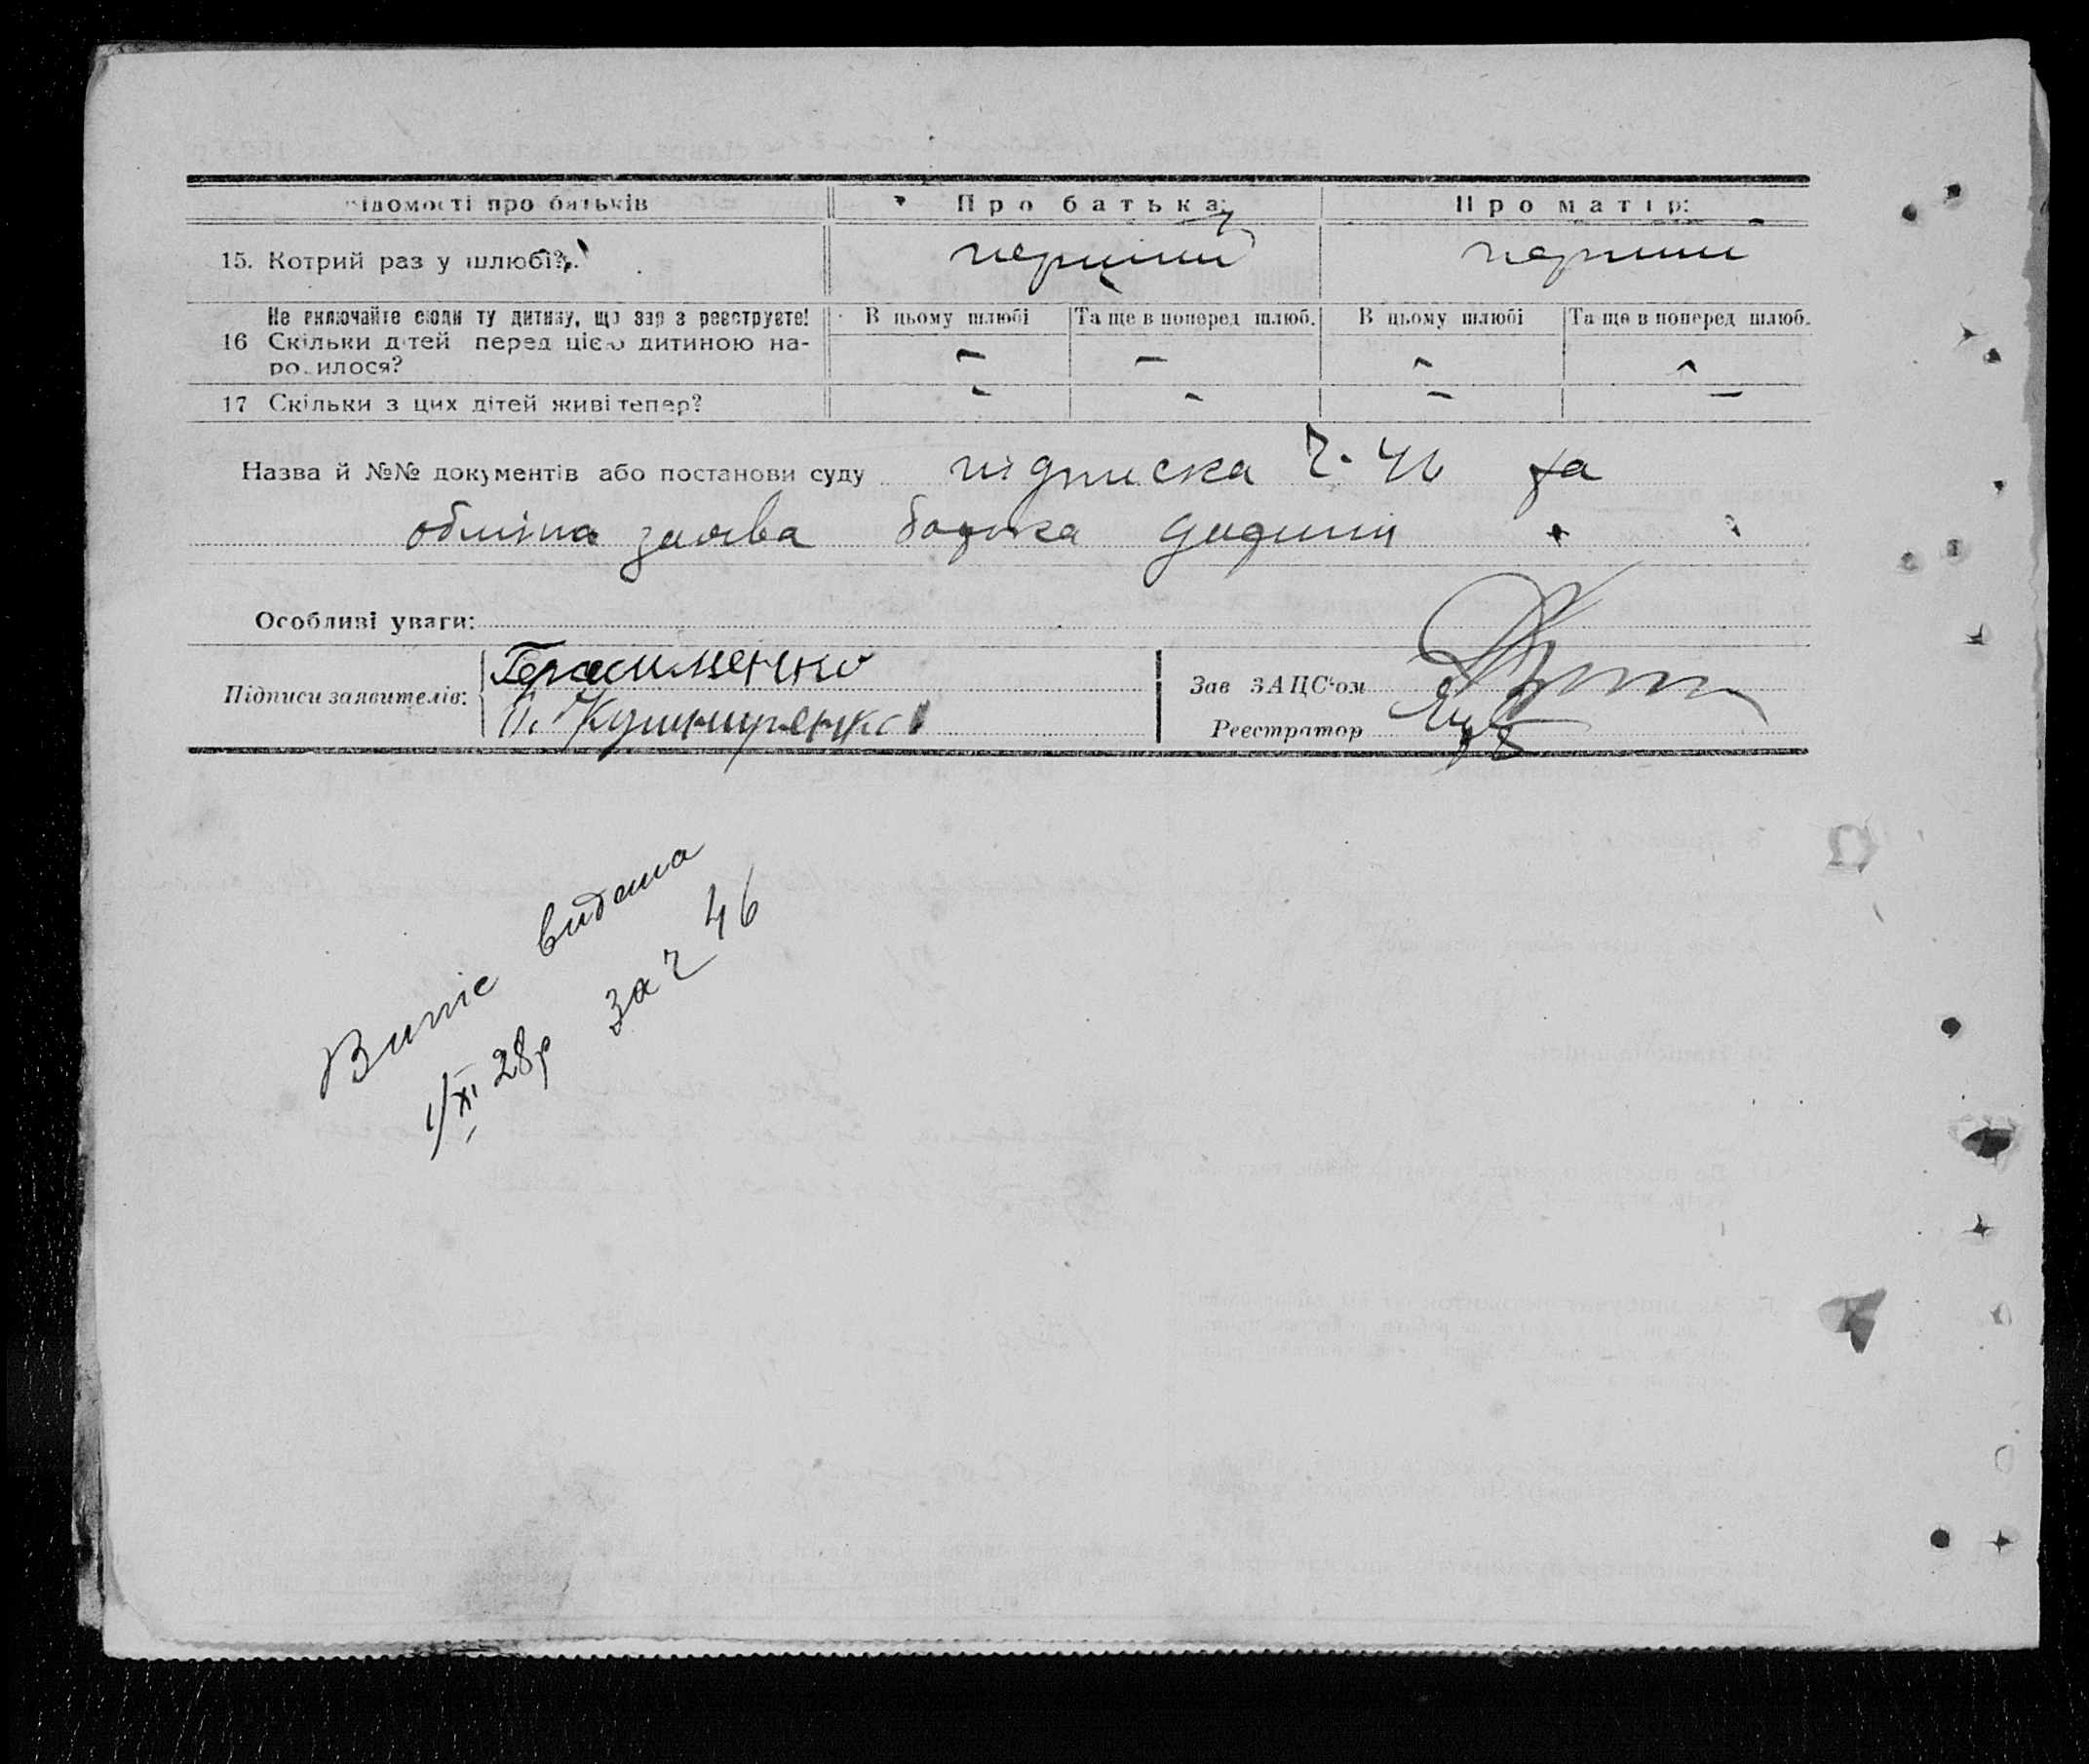 Відомості про батьків Про батька: Про матір:
15. Котрий раз у шлюбі? перший перший
Не включайте сюди ту дитину, що зараз реєструєте! В цьому шлюбі Та ще в поперед шлюб. В цьому шлюбі Та ще в поперед шлюб.
16 Скільки дітей перед цією дитиною на-
родилося? — — — —
17 Скільки з цих дітей живі тепер? — — — —
Назва й №№ документів або постанови суду підписка Ч. 46 та
заява батька дитини
Особливі уваги:
Підписи заявителів: Герасименко
Кушниренко
Зав ЗАЦС'ом
Реєстратор
Випіс видана
1/XI 28р за ч 46